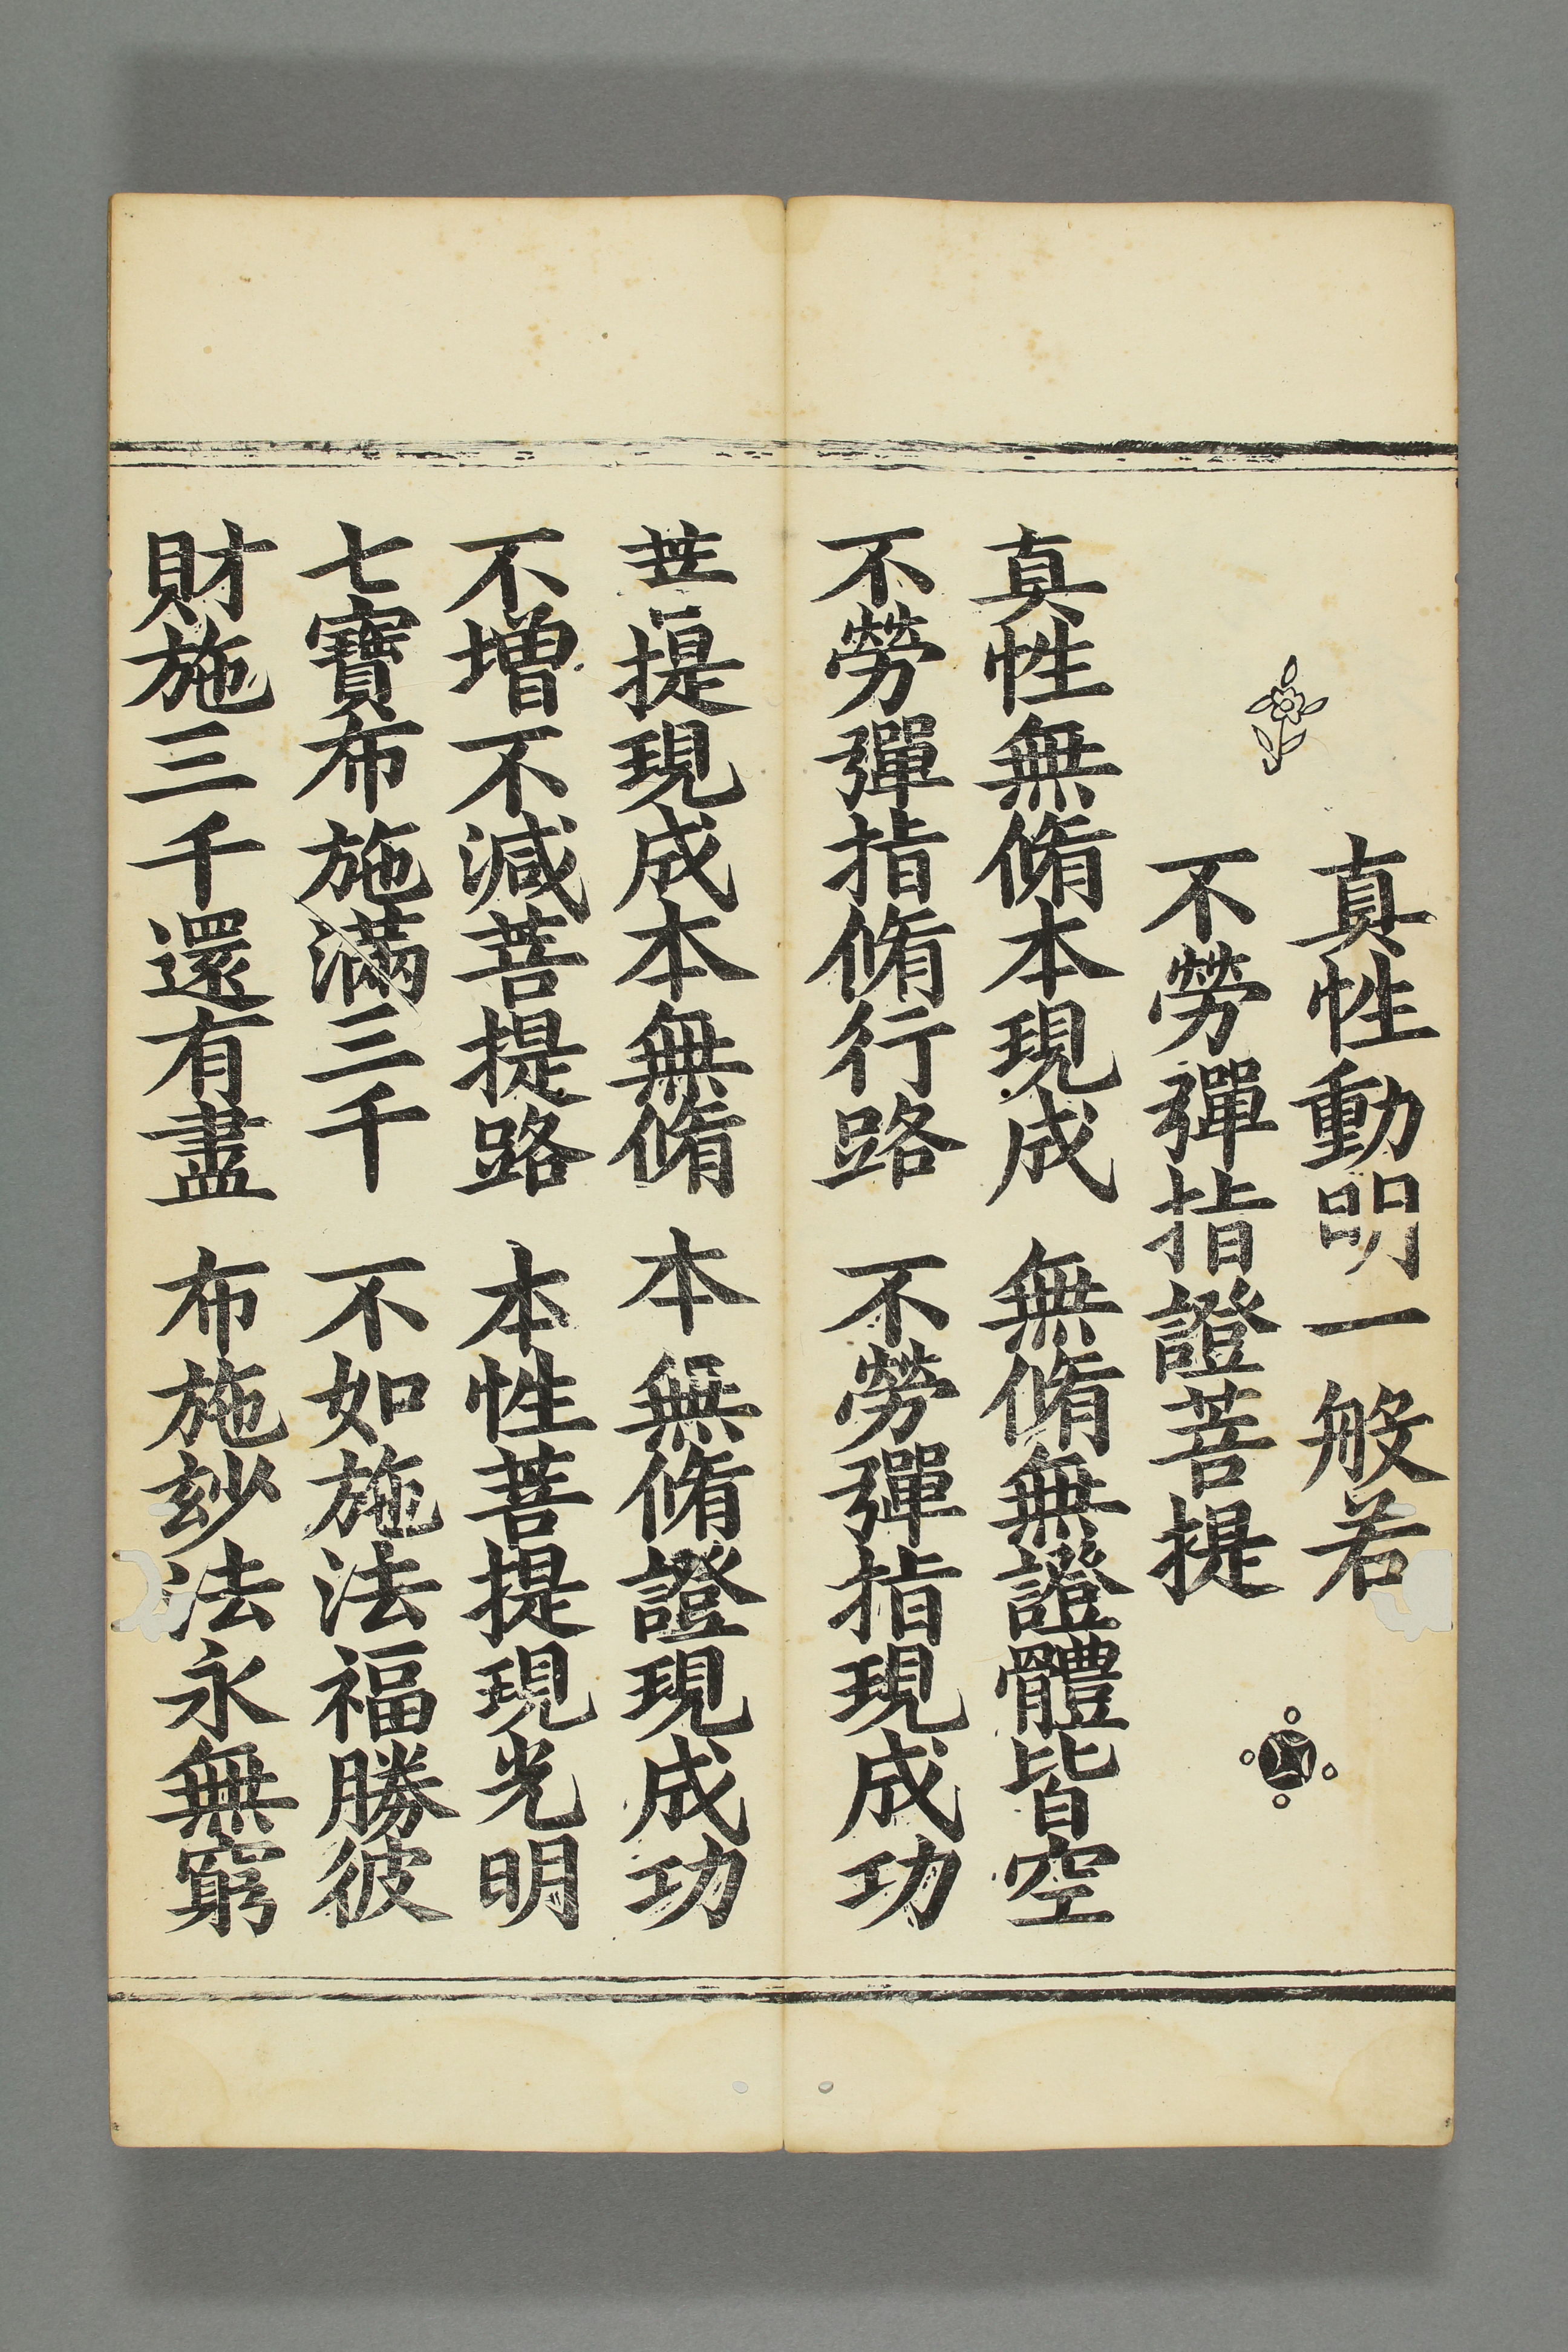 真性動明一般若
不勞彈指證菩提
真性無脩本現成　無脩無證體皆空
不勞彈指脩行路　不勞彈指現成功
菩提現成本無脩　本無脩證現成功
不增不減菩提路　本性菩提現光明
七寶布施滿三千　不如施法福勝彼
財施三千還有盡　布施玅法永無窮